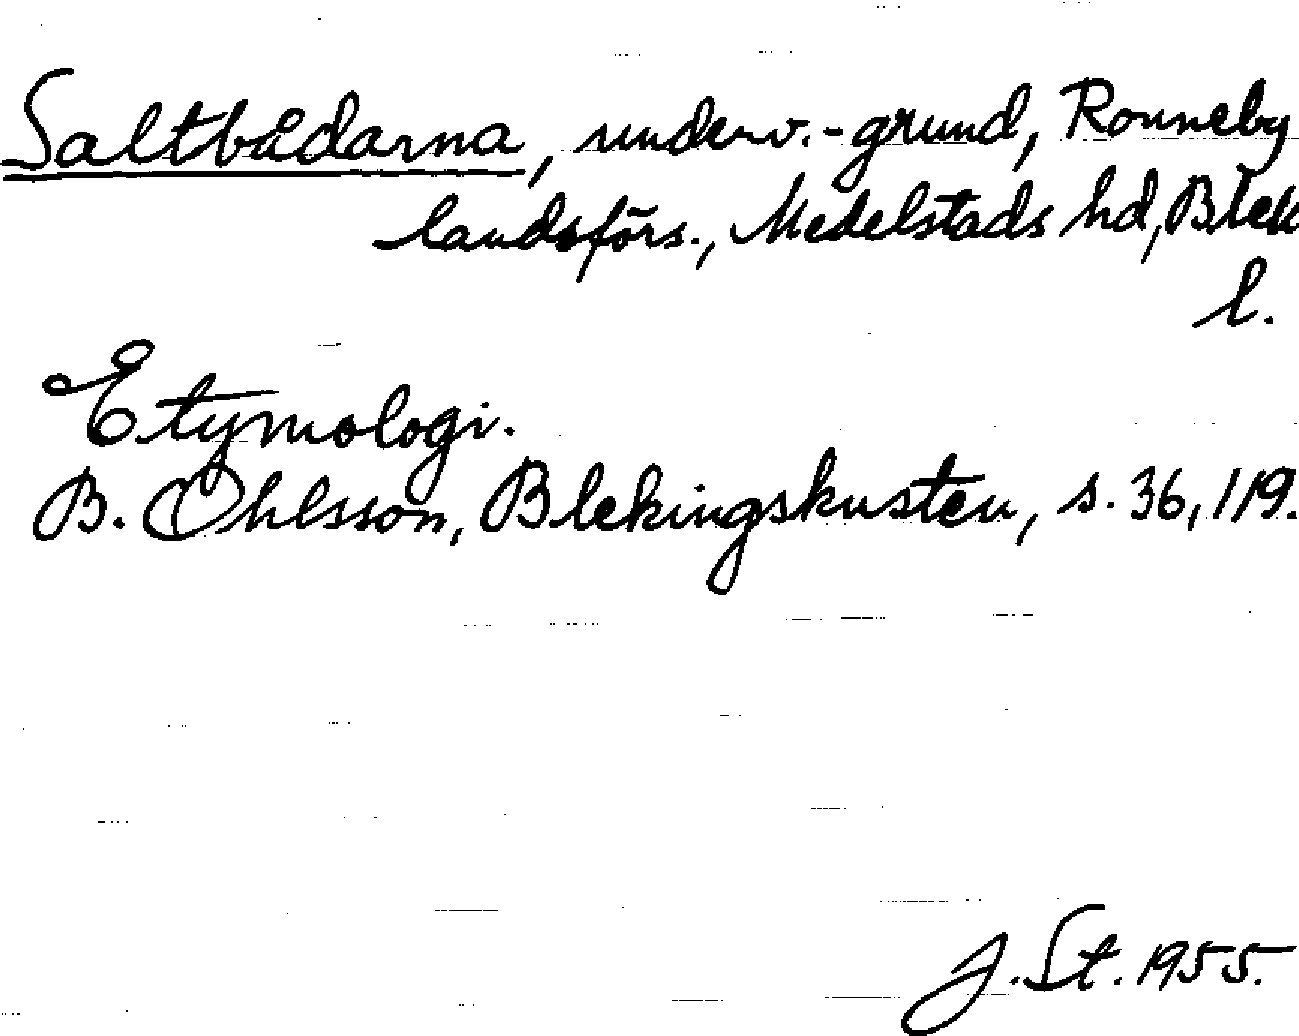 Saltbådarna, underv.-grund, Ronneby
landsförs., Medelstads hd, Blek
l.
Etymologi.
B. Ohlsson, Blekingskusten, s. 36, 119.
J. St. 1955.